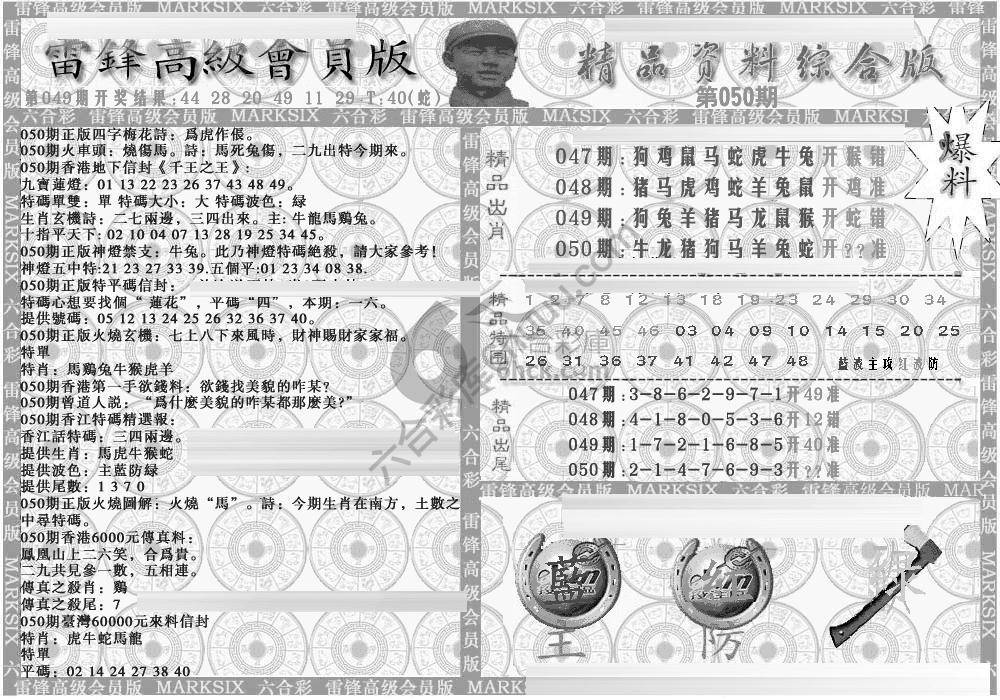 雷锋高级会员版 MARKSIX 六合彩 雷锋高级会员版 MARKSIX 六合彩 雷锋高级会员版 MARKSIX 六合彩
雷鋒高級會員版
第049期开奖结果:44 28 20 49 11 29-T:40(蛇)
精品资料综合版
第050期
爆料
050期正版四字梅花詩：爲虎作倀。
050期火車頭：燒傷馬。詩：馬死兔傷，二九出特今期來。
050期香港地下信封《千王之王》:
九寶蓮燈：01 13 22 23 26 37 43 48 49。
特碼單雙：單 特碼大小：大 特碼波色：緑
生肖玄機詩：二七兩邊，三四出來。主: 牛龍馬鷄兔。
十指平天下: 02 10 04 07 13 28 19 25 34 45。
050期正版神燈禁支：牛兔。此乃神燈特碼絶殺，請大家參考!
神燈五中特:21 23 27 33 39.五個平:01 23 34 08 38.
050期正版特平碼信封：
特碼心想要找個“ 蓮花”，平碼“四”，本期：一六。
提供號碼：05 12 13 24 25 26 32 36 37 40。
050期正版火燒玄機：七上八下來風時，財神賜財家家福。
特單
特肖：馬鷄兔牛猴虎羊
050期香港第一手欲錢料：欲錢找美貌的咋某?
050期曾道人説：“爲什麽美貌的咋某都那麽美?”
050期香江特碼精選報：
香江話特碼：三四兩邊。
提供生肖：馬虎牛猴蛇
提供波色：主藍防緑
提供尾數：1 3 7 0
050期正版火燒圖解：火燒“馬”。詩：今期生肖在南方，土數之
中尋特碼。
050期香港6000元傳真料:
鳳凰山上二六笑，合爲貴。
二九共見參一數，五相連。
傳真之殺肖：鷄
傳真之殺尾：7
050期臺灣60000元來料信封
特肖：虎牛蛇馬龍
特單
平碼：02 14 24 27 38 40
精品出肖
047期:狗鸡鼠马蛇虎牛兔开猴错
048期:猪马虎鸡蛇羊兔鼠开鸡准
049期:狗兔羊猪马龙鼠猴开蛇错
050期:牛龙猪狗马羊兔蛇开??准
精品特围
1 2 7 8 12 13 18 19 23 24 29 30 34
35 40 45 46 03 04 09 10 14 15 20 25
26 31 36 37 41 42 47 48 藍波主攻红波防
精品出尾
047期:3-8-6-2-9-7-1开49准
048期:4-1-8-0-5-3-6开12错
049期:1-7-2-1-6-8-5开40准
050期:2-1-4-7-6-9-3开??准
藍
主
防
六合彩库
雷锋高级会员版 MARKSIX 六合彩 雷锋高级会员版 MARKSIX 六合彩 雷锋高级会员版